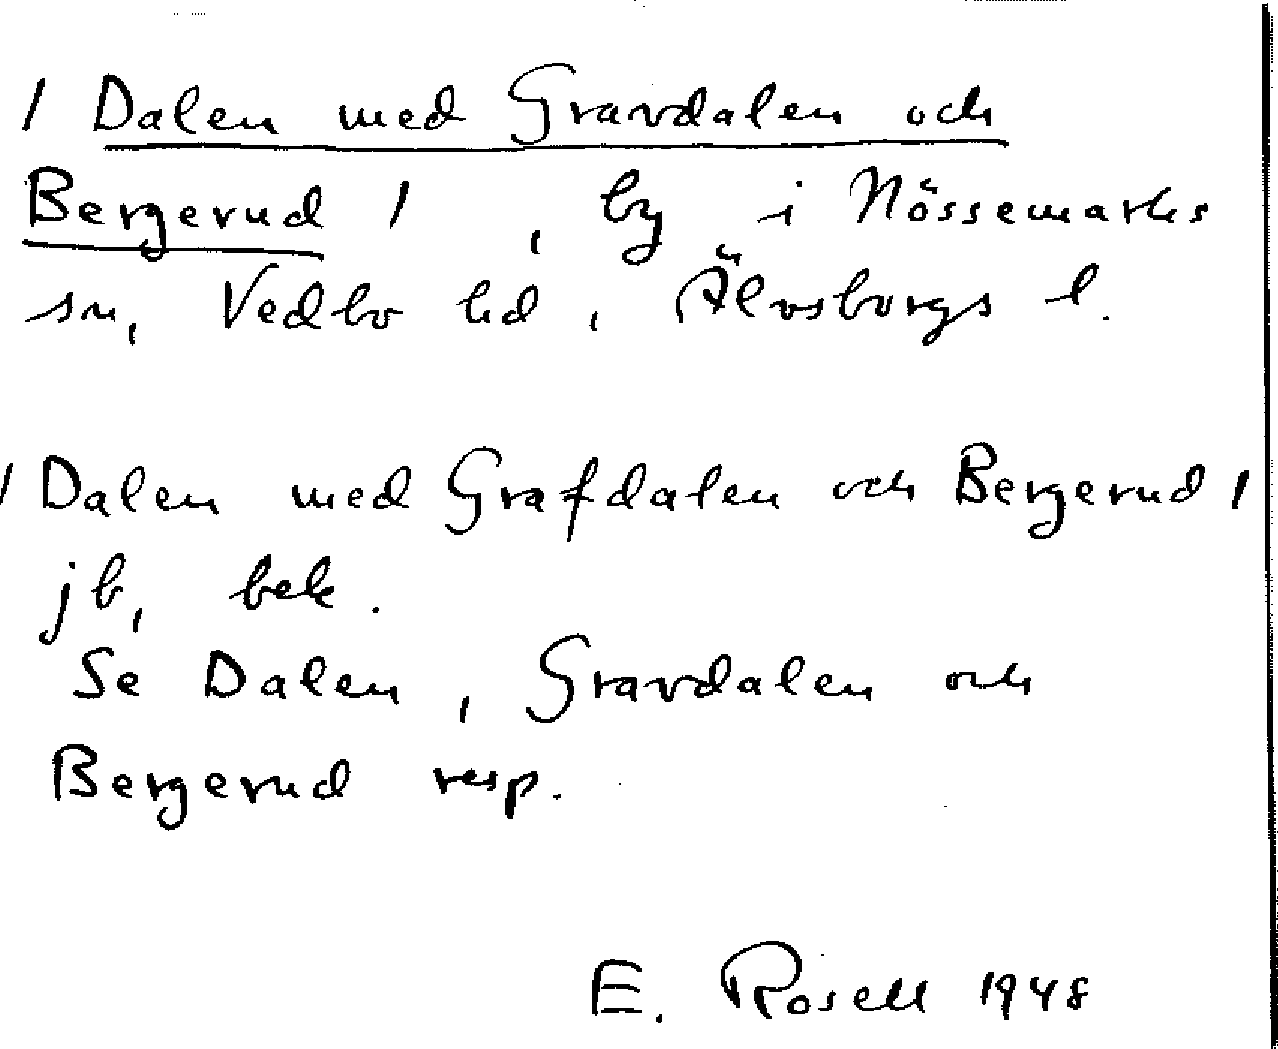 / Dalen med Gravdalen och
Bergerud /, by i Nössemarks
sn, Vedbo hd, Älvsborgs l.
/ Dalen med Grafdalen och Bergerud /
jb, bek.
Se Dalen, Gravdalen och
Bergerud resp.
E. Rosell 1948